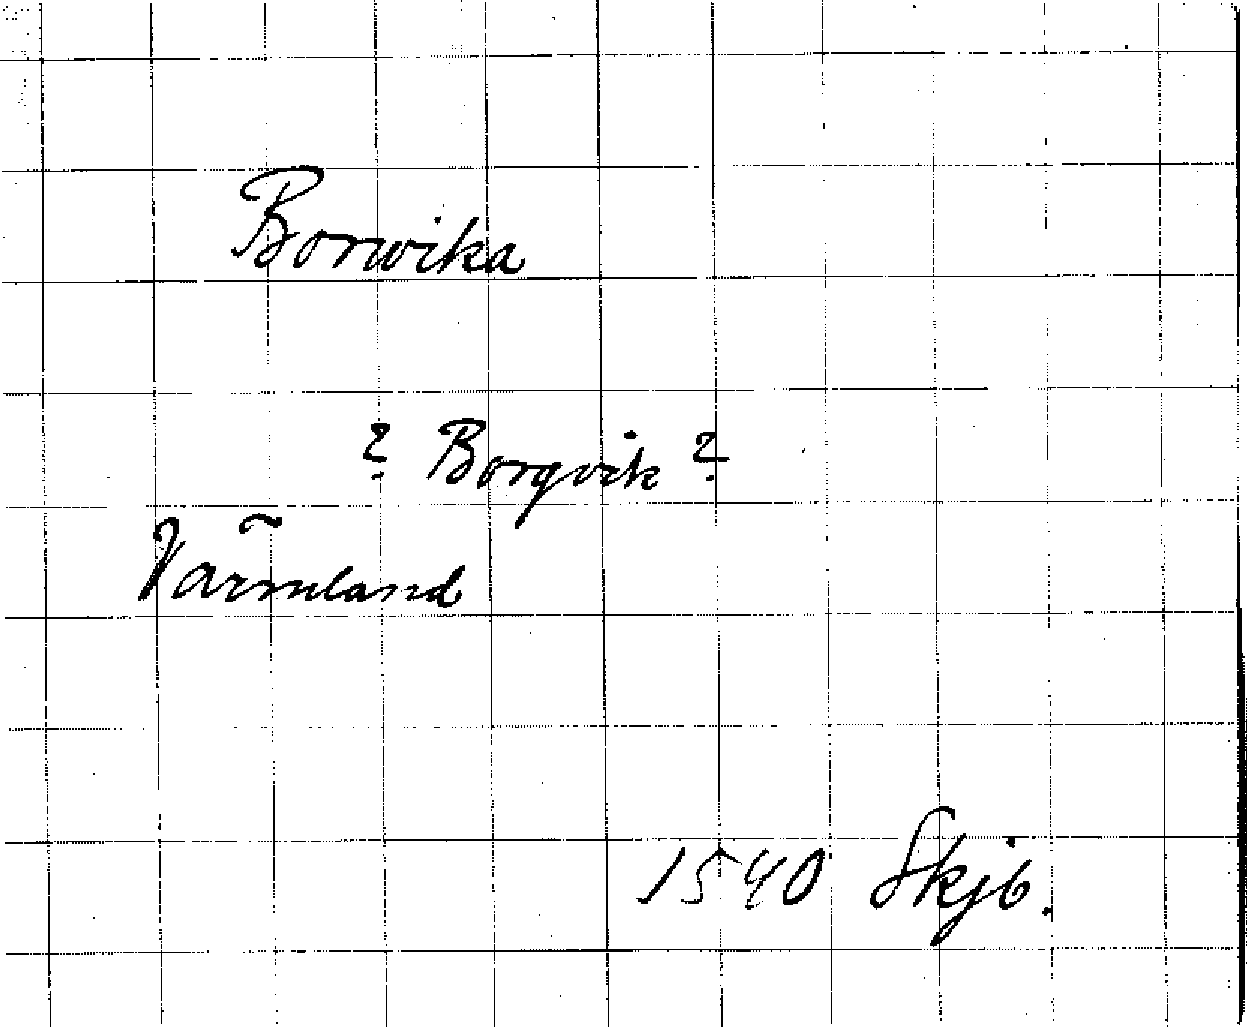 Borwika
? Borgvik ?
Värmland
1540 Skjb.